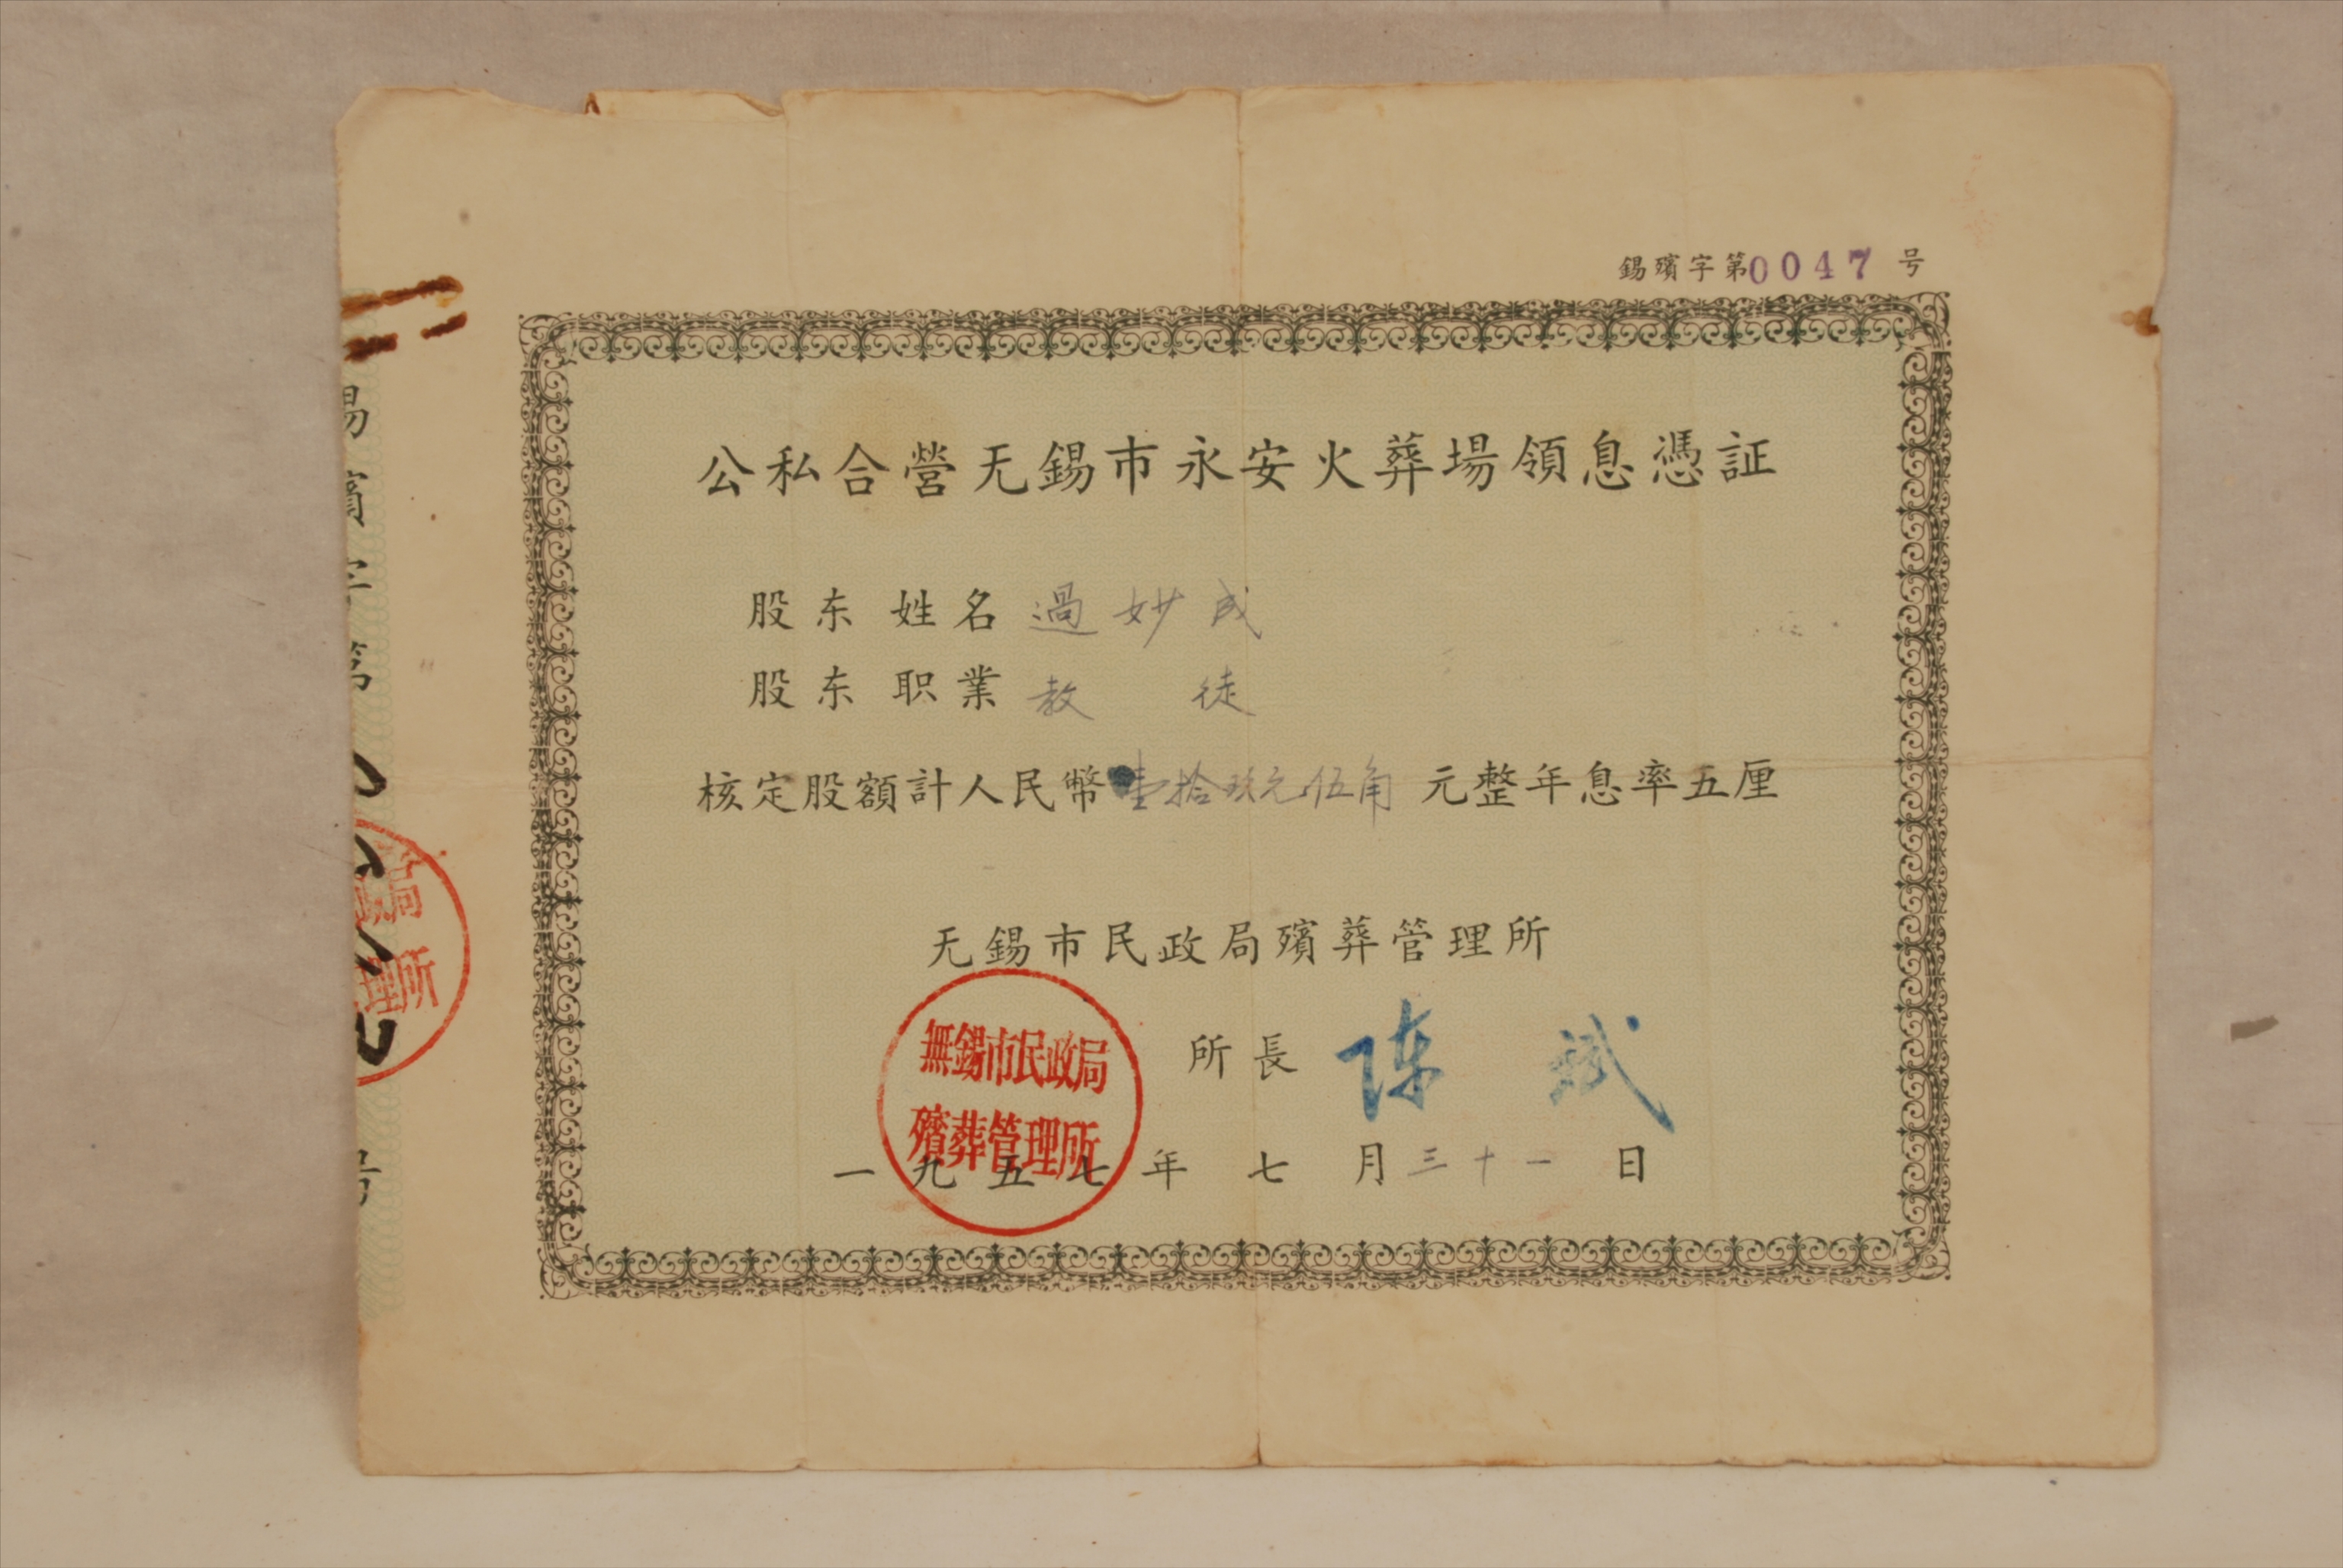 錫殯字第0047号
公私合營无錫市永安火葬場領息憑証
股东姓名 過妙成
股东职業 教徒
核定股額計人民幣壹拾玖元伍角元整年息率五厘
无錫市民政局殯葬管理所
所長 陈斌
無錫市民政局
殯葬管理所
一九五七年七月三十一日
局
理所
号